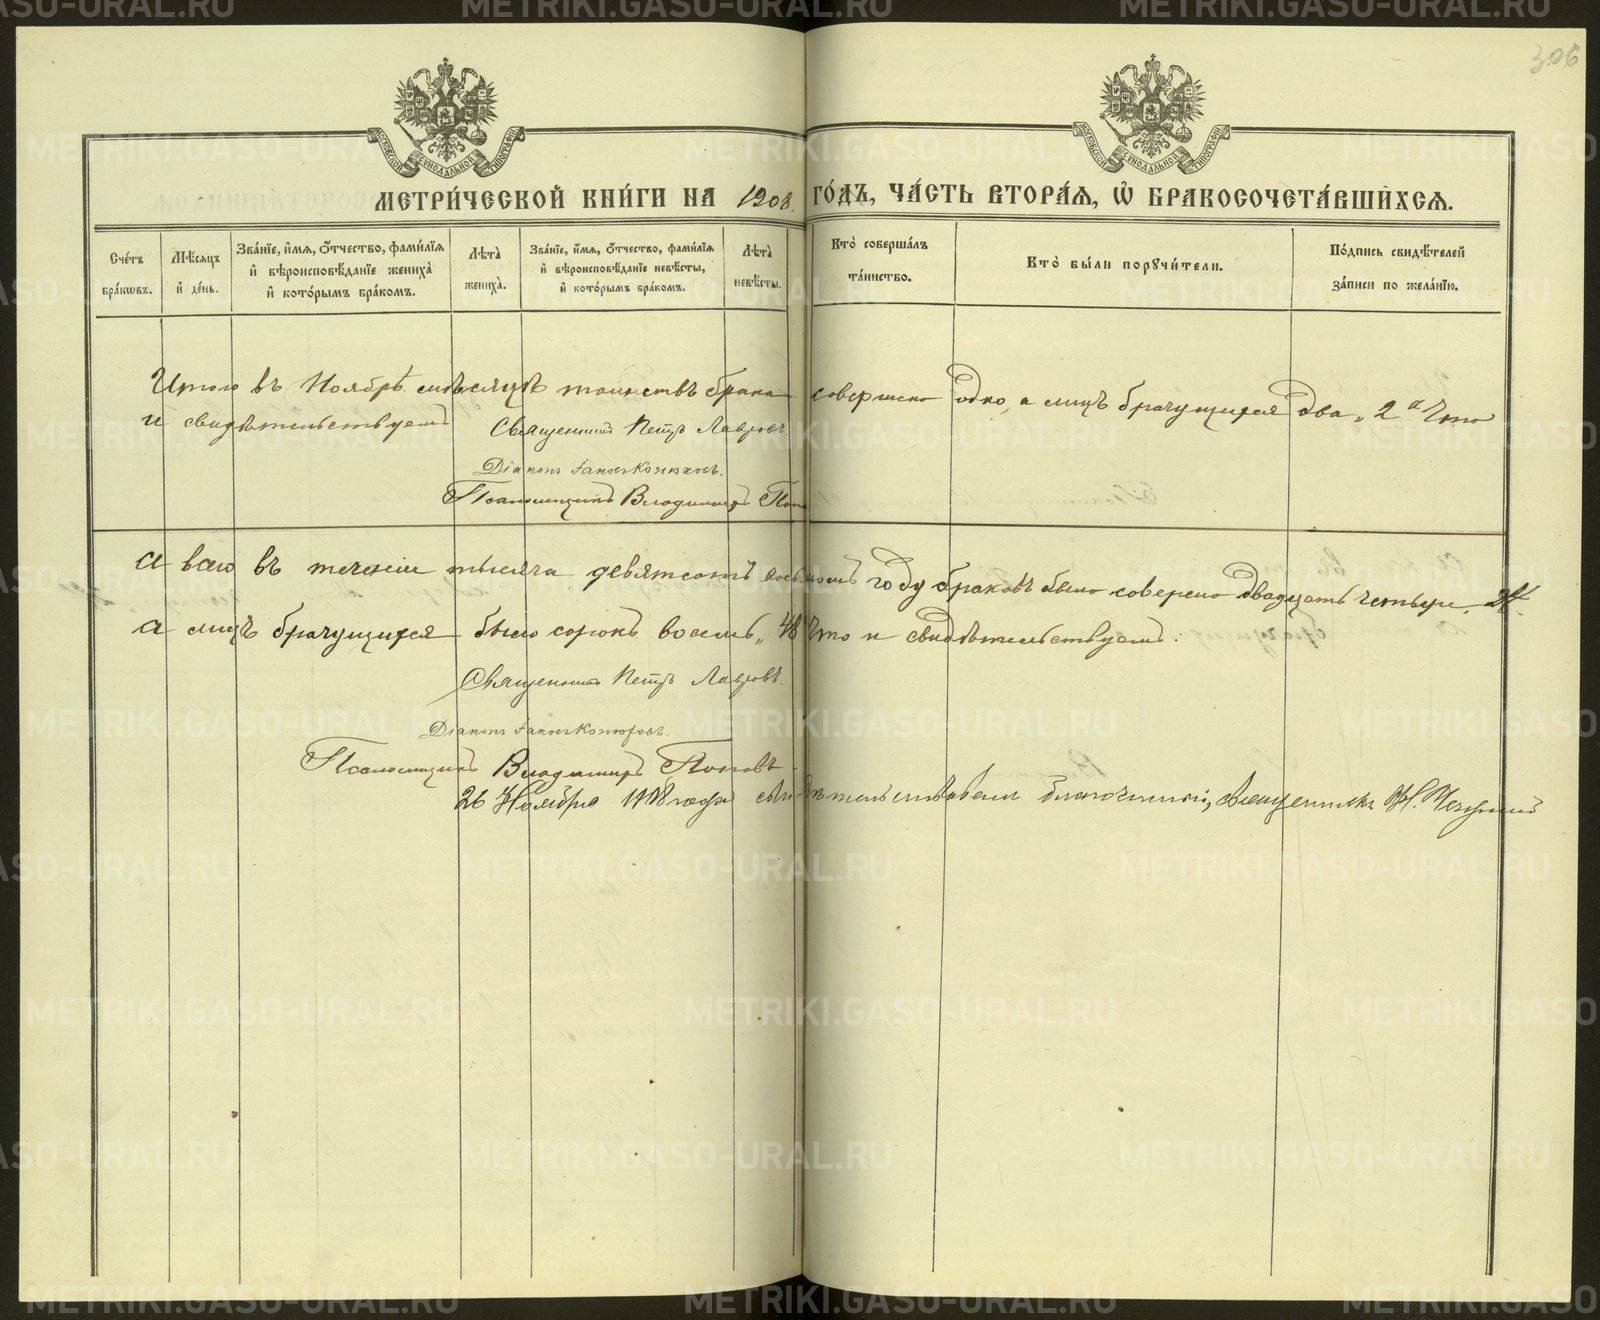 306
МОСКОВСКОЙ СѴНОДАЛЬНОЙ ТИПОГРАФІИ
МОСКОВСКОЙ СѴНОДАЛЬНОЙ ТИПОГРАФІИ
МЕТРИ́ЧЕСКОЙ КНИ́ГИ НА 1908 ГО́ДЪ, ЧА́СТЬ ВТОРА́Я, Ѽ БРАКОСОЧЕТА́ВШИХСЯ.
Сче́тъ бра́кѡвъ.
Мѣ́сяцъ и҆ де́нь.
Зва́нїе, и҆́мя, ѻ҆́тчество, фами́лїя и҆ вѣроисповѣ́данїе жениха̀ и҆ кото́рымъ бра́комъ.
Лѣта̀ жениха̀.
Зва́нїе, и҆́мя, ѻ҆́тчество, фами́лїя и҆ вѣроисповѣ́данїе невѣ́сты, и҆ кото́рымъ бра́комъ.
Лѣта̀ невѣ́сты.
Кто̀ соверша́лъ та́инство.
Кто̀ бы́ли порꙋчи́тели.
По́дпись свидѣ́телей за́писи по жела́нїю.
Итого въ Ноябрѣ мѣсяцѣ таинствъ брака совершено одно, а лицъ брачущихся два „ 2 Что
и свидѣтельствуемъ Священникъ Петръ Лавровъ.
Діаконъ Іаковъ Конюховъ.
Псаломщикъ Владимиръ Поп
А всего въ теченіи тысяча девятсотъ восьмомъ году браковъ было соверено двадцать четыре, 24.
А лицъ брачущихся было сорокъ восемь „ 48 Что и свидѣтельствуемъ:
Священникъ Петръ Лавровъ.
Діаконъ Іаковъ Конюховъ.
Псаломщикъ Владимиръ Поповъ
26 Ноября 1908 года свидѣтельствовалъ благочинный, священникъ
METRIKI.GASO-URAL.RU